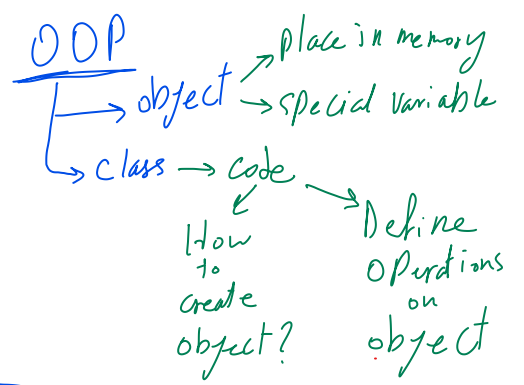 OOP
place in memory
object
special variable
class → code
How
to
create
object?
Define
Operations
on
object